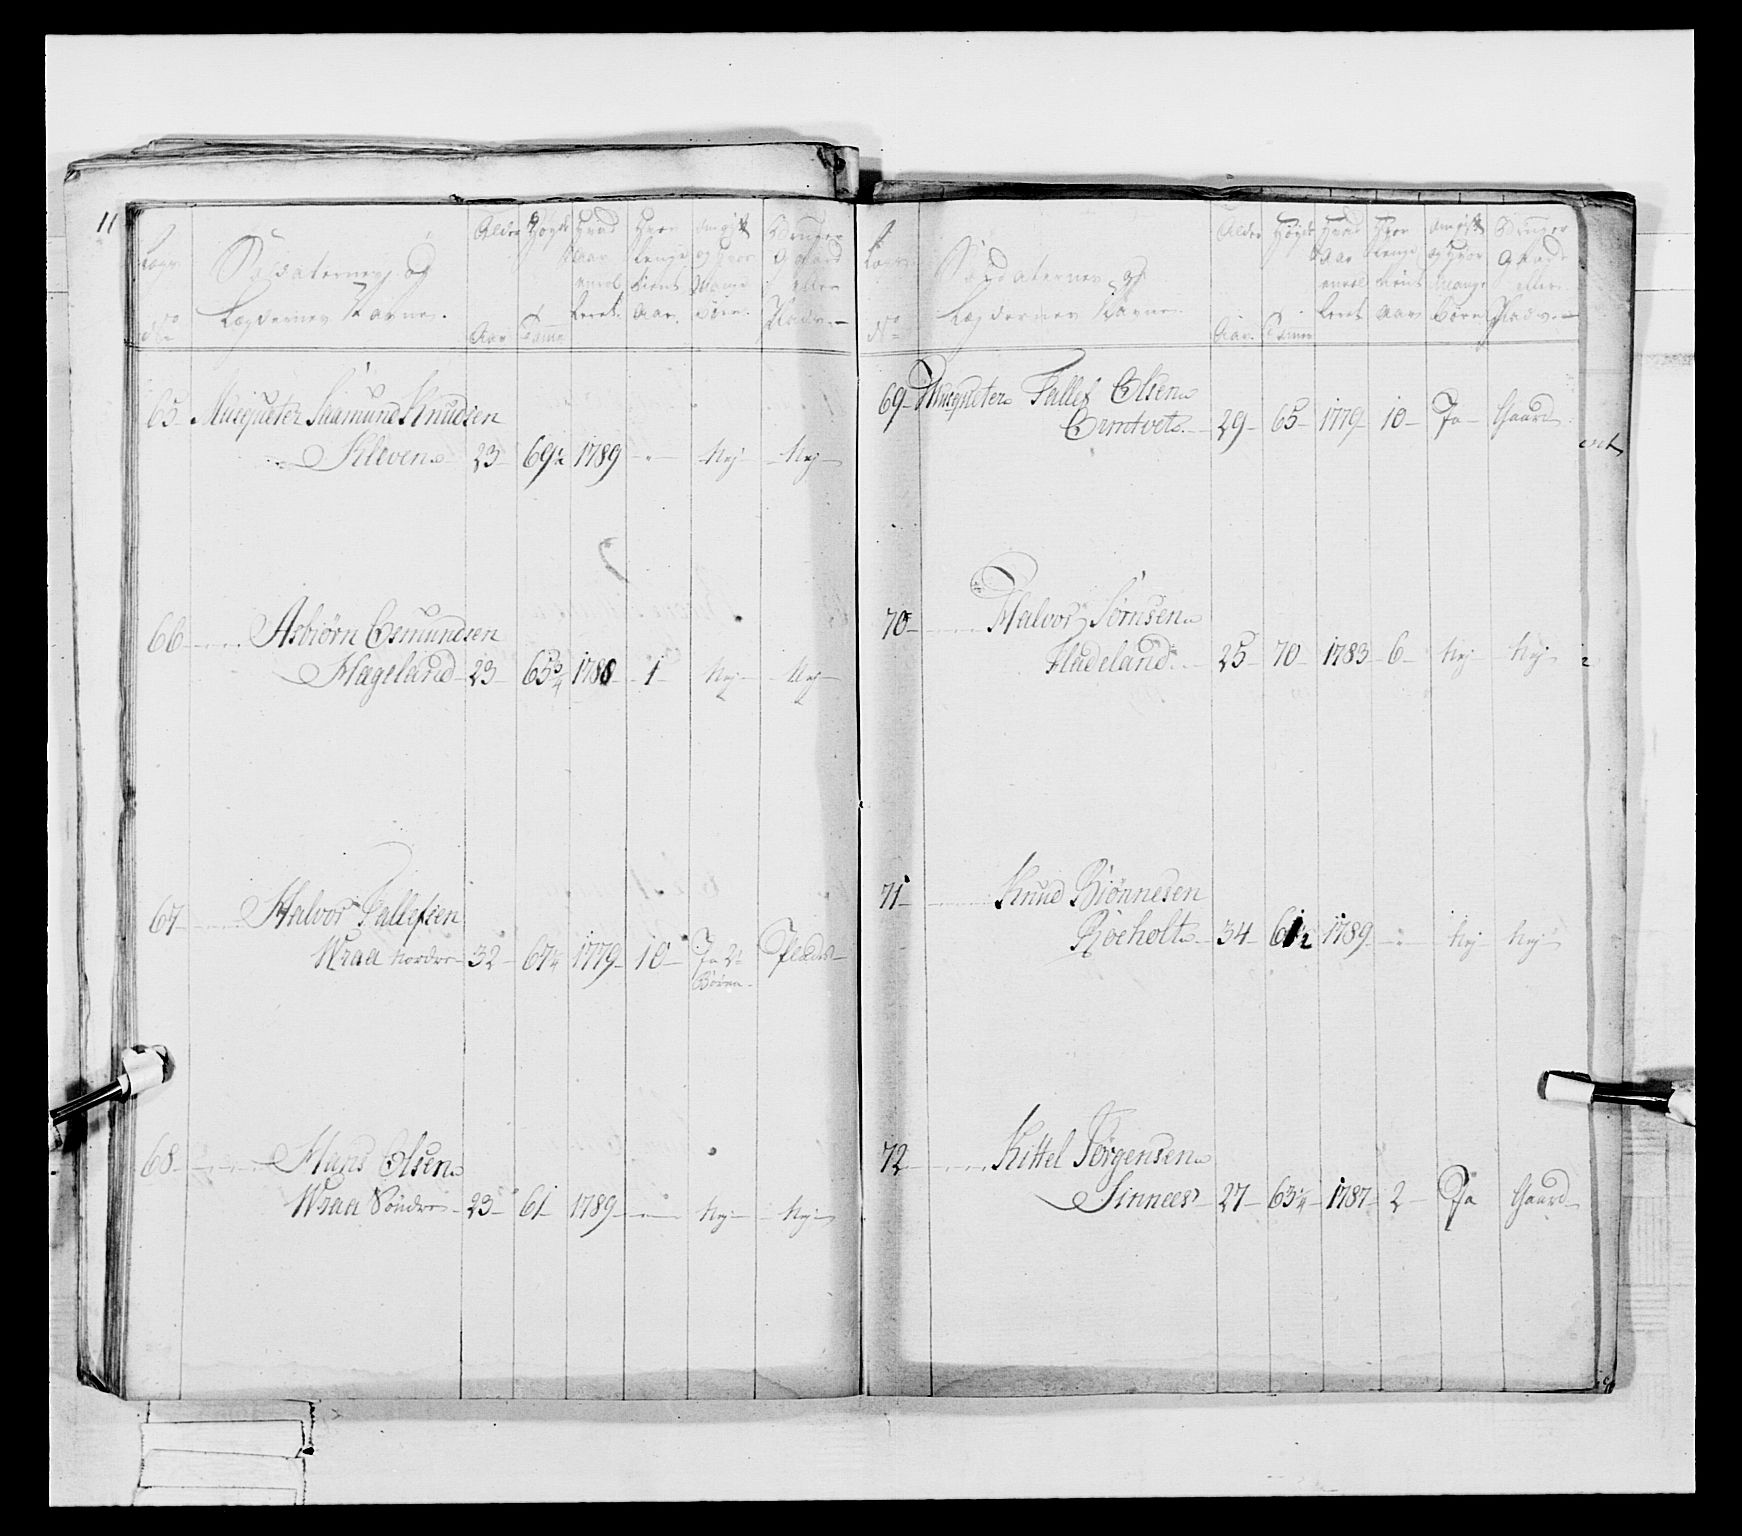 11
Lægs
No
Soldaternes og
Lægdernes Navne.
Alder
Aar
Høyde
Tomme
Hvad
Aar
enrol
leret.
Hvor
lenge
tient
Aar.
Om gift
og Hvor
Mange
Børn.
Bruger
Gaard
eller
Plads.
65 Musqueter Saamund Knudsen
Kleven 23 69½ 1789 " Nej Nej
66 Asbiørn Osmundsen
Hageland 23 65¾ 1788 1 Nej Nej
67 Halvor Tallefsen
Wraa Nordre 32 67¼ 1779 10 Ja 2
Børn
Plads
68 Hans Olsen
Wraa Søndre 23 61 1789 " Nej Nej
Lægs
No
Soldaternes og
Lægdernes Navne.
Alder
Aar.
Høyde
Tommer
Hvad
Aar
enrol
leret
Hvor
lenge
tient
Aar
Om gift
og Hvor
Mange
Børn
Bruger
Gaard
eller
Plads.
69 Musqueter Tallef Olsen
29 65 1779 10 Ja Gaard
70 Halvor Sørnsen
Fladeland 25 70 1783 6 Nej Nej
71 Knud Biønnesen
Roeholt 34 61½ 1789 " Nej Nej
72 Kittel Jørgensen
Sinnees 27 63¼ 1787 2 Ja Gaard